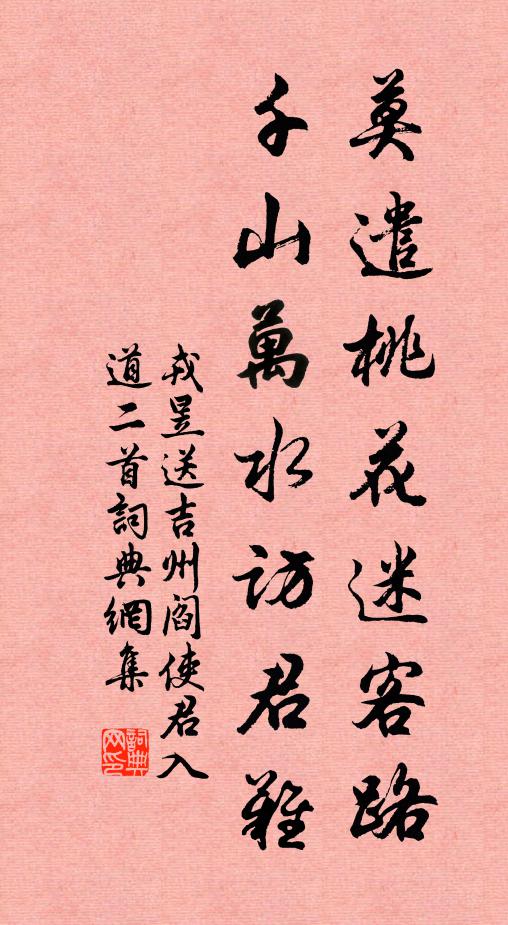 莫遣桃花迷客路
千山萬水訪君難
戎昱送吉州閻使君入
道二首詞典網集
詞典
网印